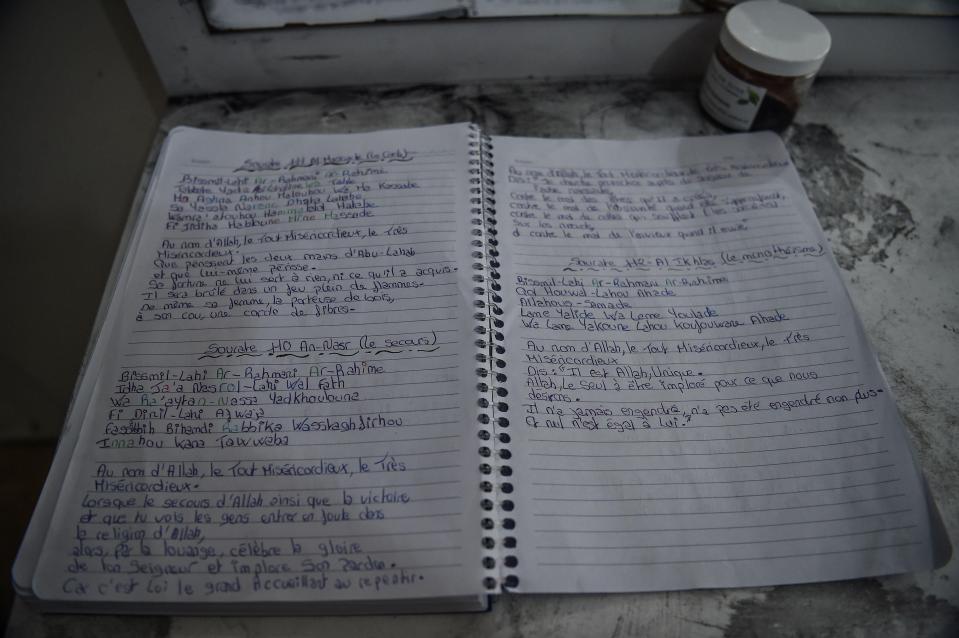 Sourate 111 Al
Bissmil-Lahi Ar-Rahmani Ar-Rahimi
Tabbate Yada
Ma Aghna Anhou Malouhou Wa Ma Kassabe
Sa Yassla Narene Dhata Lahabe
Wamra'atouhou Hammalatal Hatabe
Fi Jidiha Habloune Mine Massade
Au nom d'Allah, le Tout Miséricordieux, le Très
Miséricordieux.
Que périssent les deux mains d'Abu-Lahab
et que lui-même périsse.
Sa fortune ne lui sert à rien, ni ce qu'il a acquis.
Il sera brûlé dans un feu plein de flammes.
de même sa femme, la porteuse de bois,
à son cou, une corde de fibres.
Sourate 110 An-Nasr (le secours)
Bissmil-Lahi Ar-Rahmani Ar-Rahime
Idha Ja'a Nasrol-Lahi Wal Fath
Wa Ra'aytan-Nassa Yadkhouloune
Fi Dinil-Lahi Afwaja
Fassabbih Bihamdi Rabbika Wasstaghdirhou
Innahou Kana Tawwaba
Au nom d'Allah, le Tout Miséricordieux, le Très
Miséricordieux.
Lorsque le secours d'Allah ainsi que la victoire
et que tu vois les gens entrer en foule dans
la religion d'Allah,
alors, par la louange, célèbre la gloire
de ton Seigneur et implore Son Pardon.
Car c'est Lui le grand Accueillant au repentir.
Au nom d'Allah, le Tout Miséricordieux, le Très Miséricordieux
Dis: "Je cherche protection auprès du Seigneur de
l'aube naissante,
contre le mal des êtres qu'il a créés,
contre le mal de l'obscurité quand elle s'approfondit,
contre le mal de celles qui soufflent
sur les nœuds,
et contre le mal de l'envieux quand il envie.
Sourate 112-Al Ikhlas (le monothéisme)
Bissmil-Lahi Ar-Rahmani Ar-Rahime
Qol Houwal-Lahou Ahade
Allahous-Samade
Lame Yalide Wa Lame Youlade
Wa Lame Yakoune Lahou Koufouwane Ahade
Au nom d'Allah, le Tout Miséricordieux, le Très
Miséricordieux
Dis: "Il est Allah, Unique.
Allah, le Seul à être imploré pour ce que nous
désirons.
Il n'a jamais engendré, n'a pas été engendré non plus.
Et nul n'est égal à Lui."